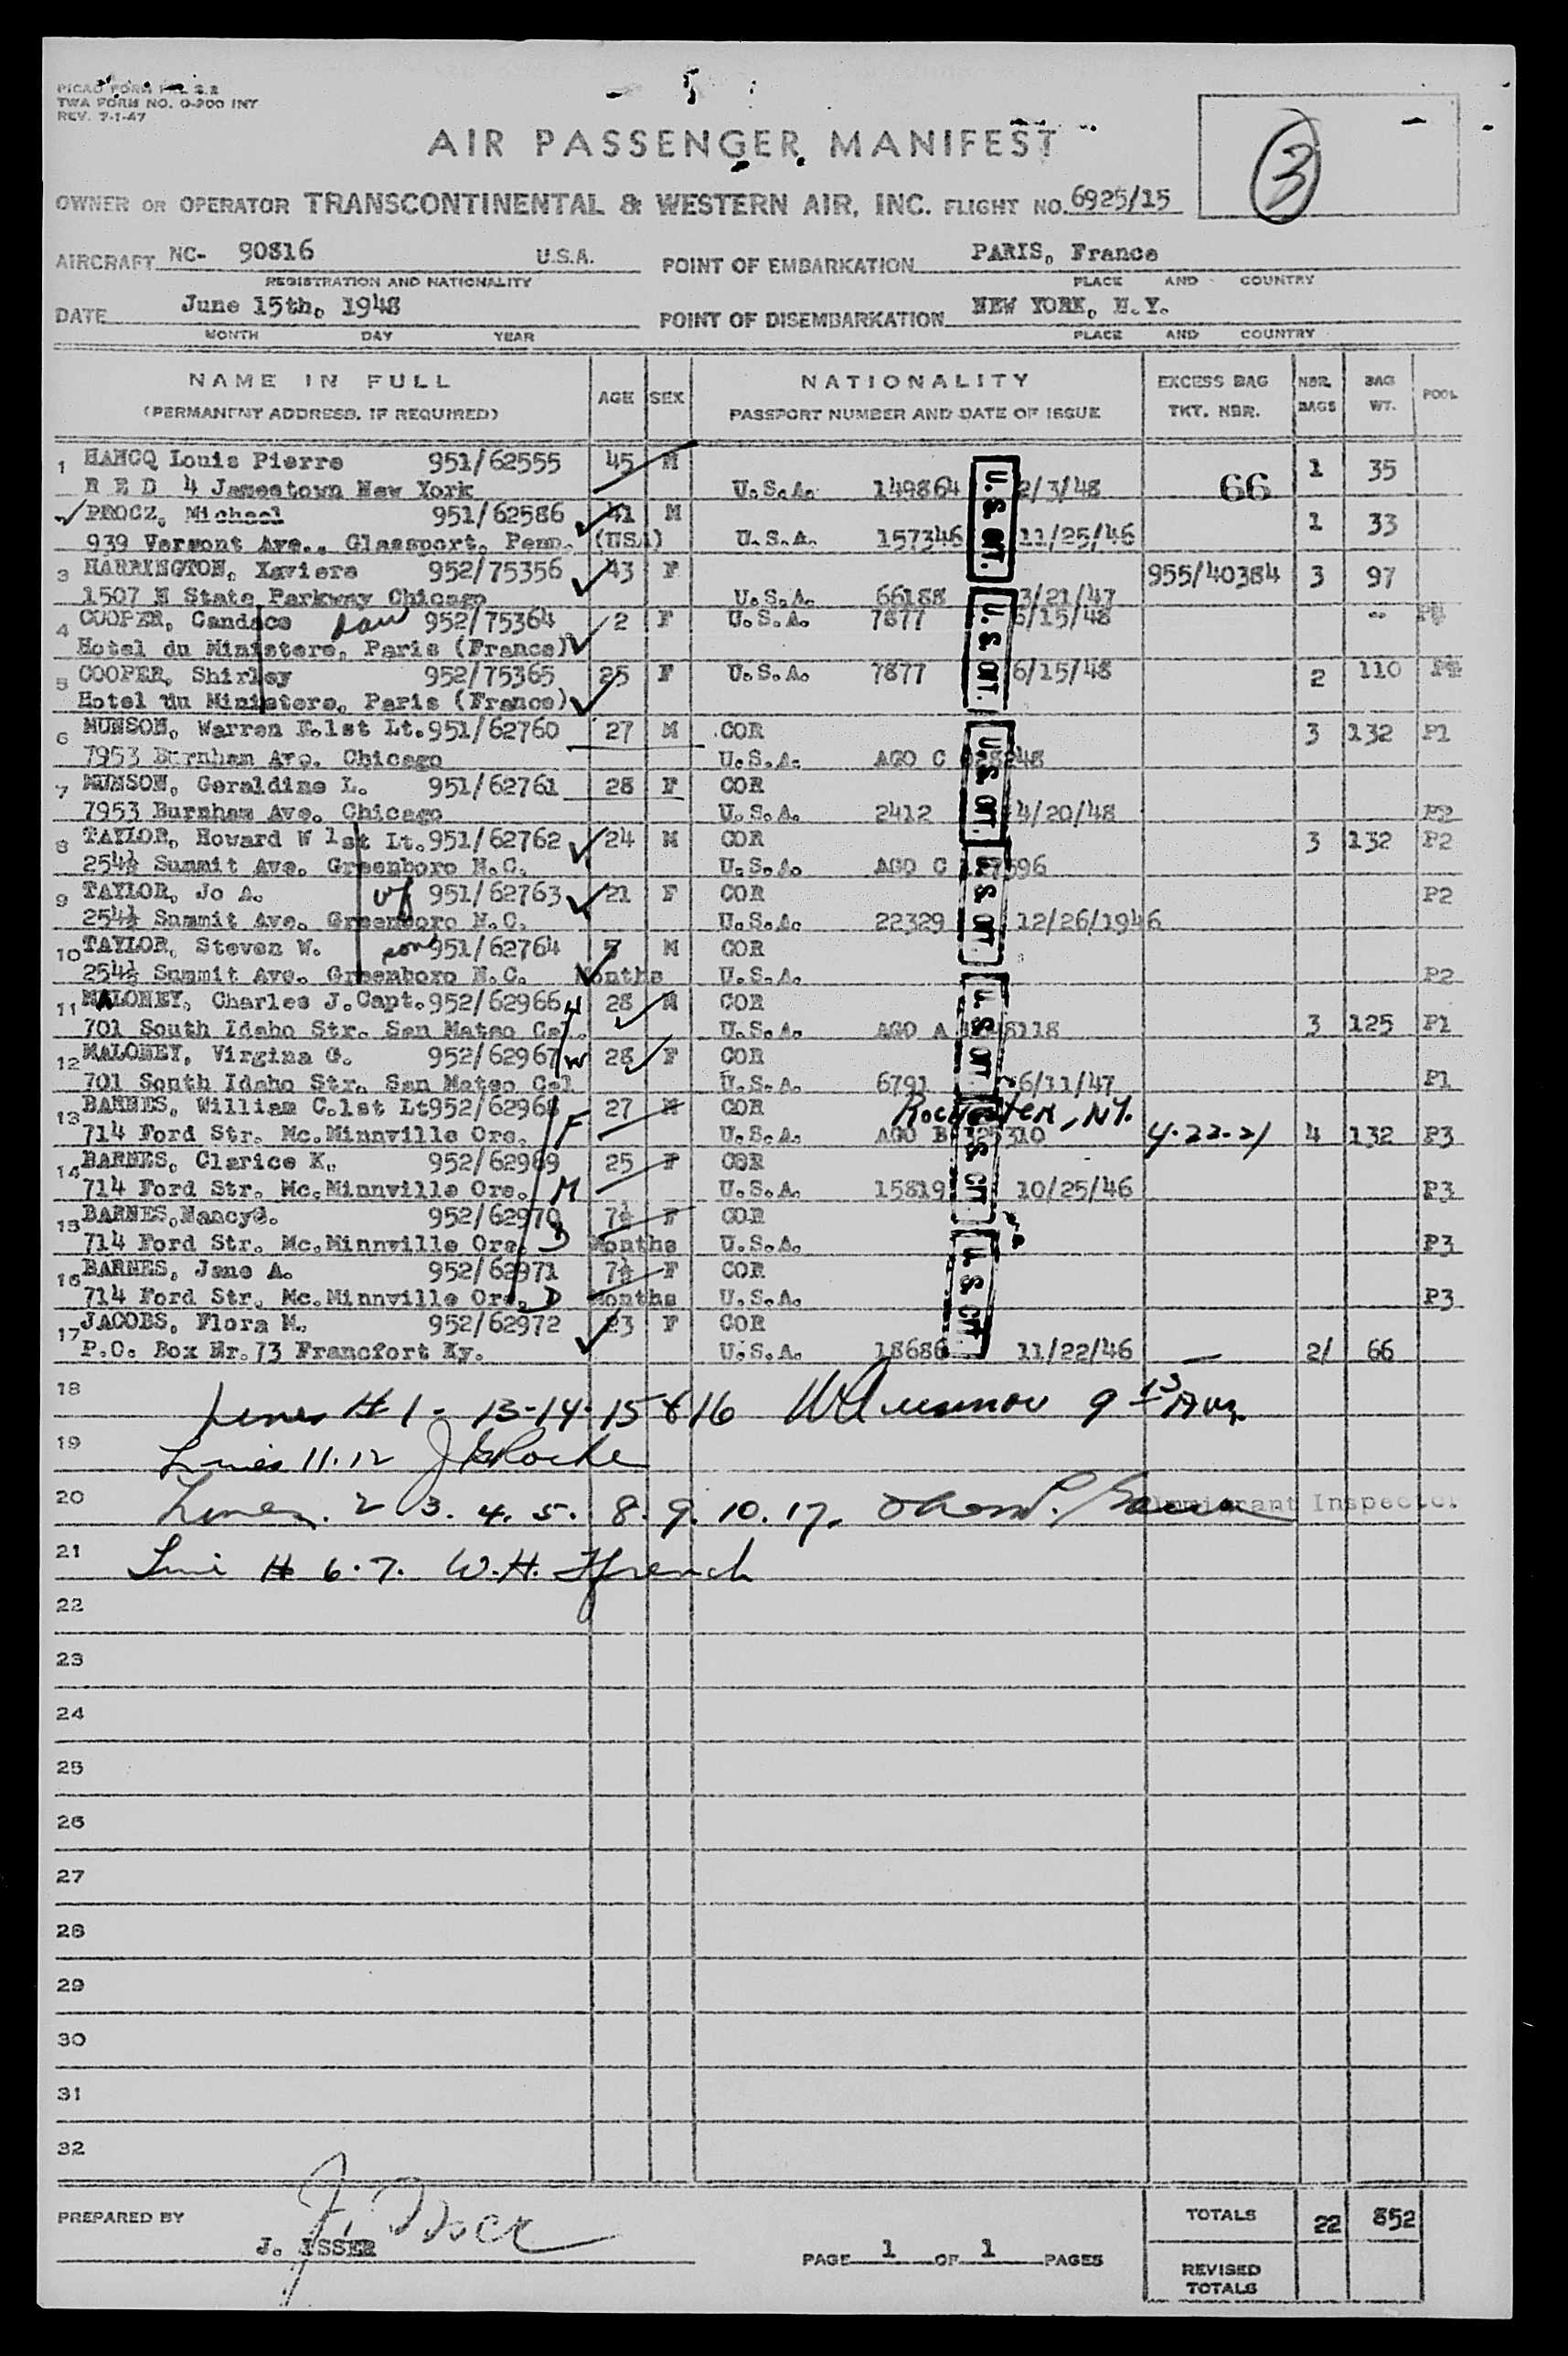 TWA FORM NO. O-200 INT
REV. 7-1-47
AIR PASSENGER MANIFEST
3
OWNER OR OPERATOR TRANSCONTINENTAL & WESTERN AIR, INC. FLIGHT NO. 6925/15
AIRCRAFT NC- 90816 U.S.A. POINT OF EMBARKATION PARIS, France
REGISTRATION AND NATIONALITY PLACE AND COUNTRY
DATE June 15th, 1948 POINT OF DISEMBARKATION NEW YORK, N.Y.
MONTH DAY YEAR PLACE AND COUNTRY
NAME IN FULL AGE SEX NATIONALITY EXCESS BAG NBR. BAG POOL
(PERMANENT ADDRESS, IF REQUIRED) PASSPORT NUMBER AND DATE OF ISSUE TKT. NBR. BAGS WT.
1 HANCQ Louis Pierre 951/62555 45 M 1 35
R E D 4 Jamestown New York U.S.A. 149864 2/3/48 66
PROCZ, Michael 951/62586 41 M 1 33
939 Vermont Ave., Glassport, Penn. (USA) U.S.A. 157346 11/25/46
3 HARRINGTON, Xaviera 952/75356 43 F 955/40384 3 97
1507 N State Parkway Chicago U.S.A. 66188 3/21/47
4 COOPER, Candace dau 952/75364 2 F U.S.A. 7877 6/15/48 --
Hotel du Ministere, Paris (France)
5 COOPER, Shirley 952/75365 25 F U.S.A. 7877 6/15/48 2 110
Hotel du Ministere, Paris (France)
6 MUNSON, Warren E.1st Lt. 951/62760 27 M COR 3 132 P1
7953 Burnham Ave. Chicago U.S.A. AGO C
7 MUNSON, Geraldine L. 951/62761 28 F COR
7953 Burnham Ave. Chicago U.S.A. 2412 4/20/48 P2
8 TAYLOR, Howard W 1st Lt. 951/62762 24 M COR 3 132 P2
254½ Summit Ave. Greenboro N.C. U.S.A. AGO C
9 TAYLOR, Jo A. wf 951/62763 21 F COR P2
254½ Summit Ave. Greenboro N.C. U.S.A. 22329 12/26/1946
10 TAYLOR, Steven W. son 951/62764 5 M COR
254½ Summit Ave. Greenboro N.C. Months U.S.A. P2
11 MALONEY, Charles J.Capt. 952/62966 H 28 M COR
701 South Idaho Str. San Mateo Cal. U.S.A. AGO A 3 125 P1
12 MALONEY, Virgina G. 952/62967 W 28 F COR
701 South Idaho Str. San Mateo Cal U.S.A. 6791 6/11/47 P1
13 BARNES, William C.1st Lt 952/62968 F 27 M COR Rochester, N.Y.
714 Ford Str. Mc.Minnville Ore. U.S.A. AGO B 4-22-21 4 132 P3
14 BARNES, Clarice K. 952/62969 25 F COR
714 Ford Str. Mc.Minnville Ore. M U.S.A. 15819 10/25/46 P3
15 BARNES,NancyG. 952/62970 7½ F COR
714 Ford Str. Mc.Minnville Ore. D Months U.S.A. P3
16 BARNES, Jane A. 952/62971 7½ F COR
714 Ford Str. Mc.Minnville Ore. D Months U.S.A. P3
17 JACOBS, Flora M. 952/62972 23 F COR
P.O. Box Nr.73 Francfort Ky. U.S.A. 18686 11/22/46 2/ 66
U.S. CIT.
U.S. CIT.
U.S. CIT.
U.S. CIT.
U.S. CIT.
U.S. CIT.
U.S. CIT.
18 Lines # 1 - 13-14-15 & 16
19 Lines 11.12
20 Lines. 2 3. 4. 5. 8. 9. 10. 17. Immigrant Inspector
21 Line # 6.7. W.H. Ffrench
22
23
24
25
26
27
28
29
30
31
32
PREPARED BY J. ISSER
PAGE 1 OF 1 PAGES
TOTALS 22 852
REVISED TOTALS